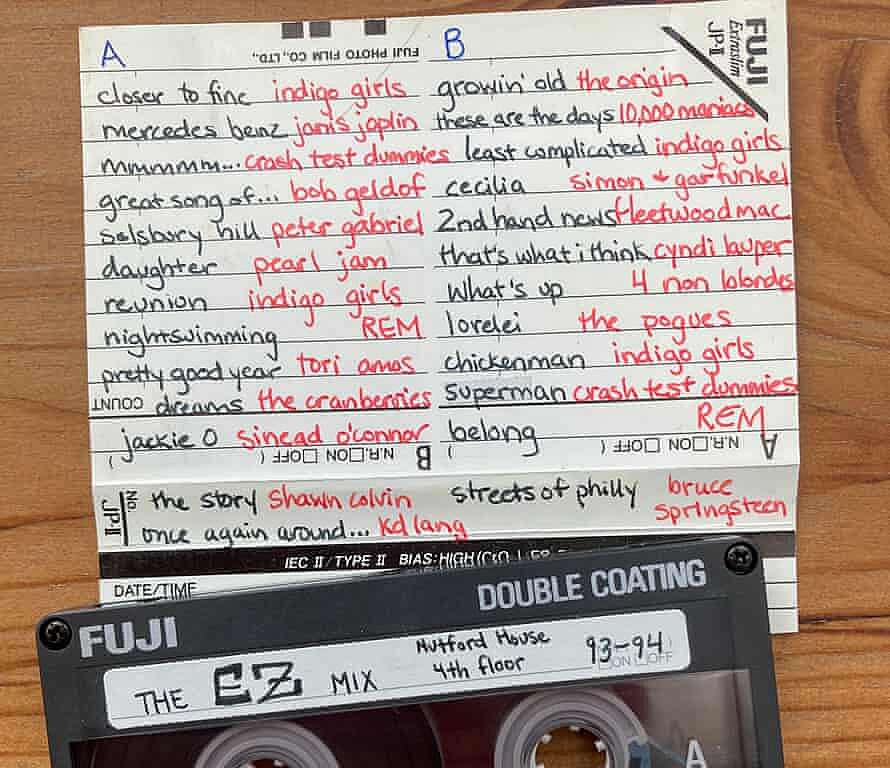 A
FUJI PHOTO FILM CO., LTD.
B
FUJI
Extraslim
JP-II
closer to fine indigo girls
mercedes benz janis joplin
mmmmmm... crash test dummies
great song of... bob geldof
salsbury hill peter gabriel
daughter pearl jam
reunion indigo girls
nightswimming REM
pretty good year tori amos
COUNT dreams the cranberries
jackie O sinead o'connor
B N.R. □ON □OFF ( )
growin' old the origin
these are the days 10,000 maniacs
least complicated indigo girls
cecilia simon + garfunkel
2nd hand news fleetwood mac
that's what i think cyndi lauper
what's up 4 non blondes
lorelei the pogues
chickenman indigo girls
superman crash test dummies
belong REM
A N.R. □ON □OFF ( )
No.
JP-II
the story Shawn colvin
once again around... kd lang
streets of philly bruce
springsteen
IEC II/TYPE II BIAS:HIGH
DATE/TIME
FUJI
DOUBLE COATING
THE EZ MIX
Nutford House
4th floor
93-94
ON OFF
A